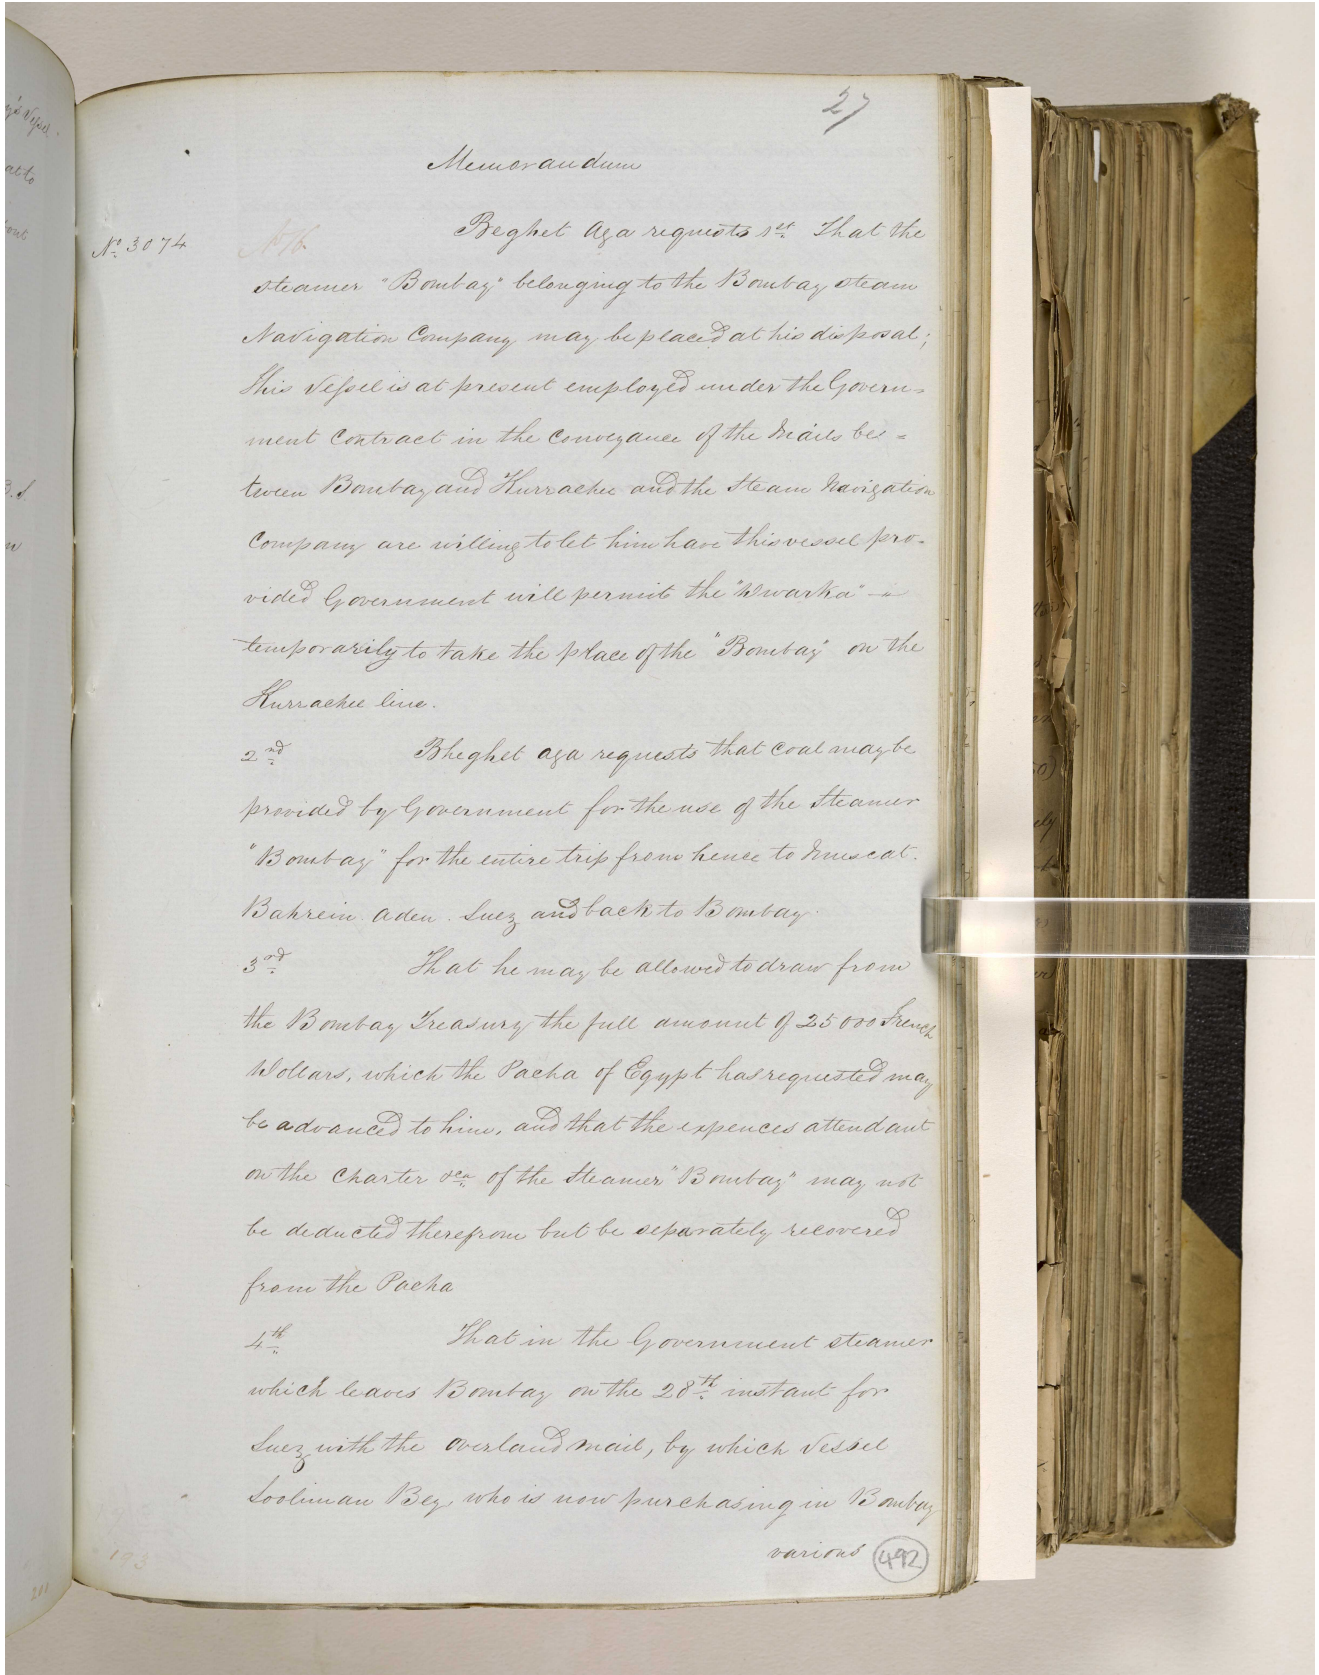 27
Memorandum
No. 3074
No 16
Beghet Aga requests 1st That the
steamer "Bombay" belonging to the Bombay steam
Navigation Company may be placed at his disposal;
this Vessel is at present employed under the Govern=
ment Contract in the Conveyance of the Mails be=
tween Bombay and Kurrachee and the Steam Navigation
Company are willing to let him have this vessel pro-
vided Government will permit the "Dwarka"
temporarily to take the place of the "Bombay" on the
Kurrachee line.
2nd Bheghet aga requests that Coal may be
provided by Government for the use of the Steamer
"Bombay" for the entire trip from hence to Muscat.
Bahrein. Aden. Suez and back to Bombay.
3rd That he may be allowed to draw from
the Bombay Treasury the full amount of 25000 French
Dollars, which the Pacha of Egypt has requested may
be advanced to him, and that the expences attendant
on the Charter &ca of the Steamer "Bombay" may not
be deducted therefrom but be separately recovered
from the Pacha
4th That in the Government steamer
which leaves Bombay on the 28th instant for
Suez with the overland mail, by which Vessel
Sooliman Bey who is now purchasing in Bombay
various
492
193
201